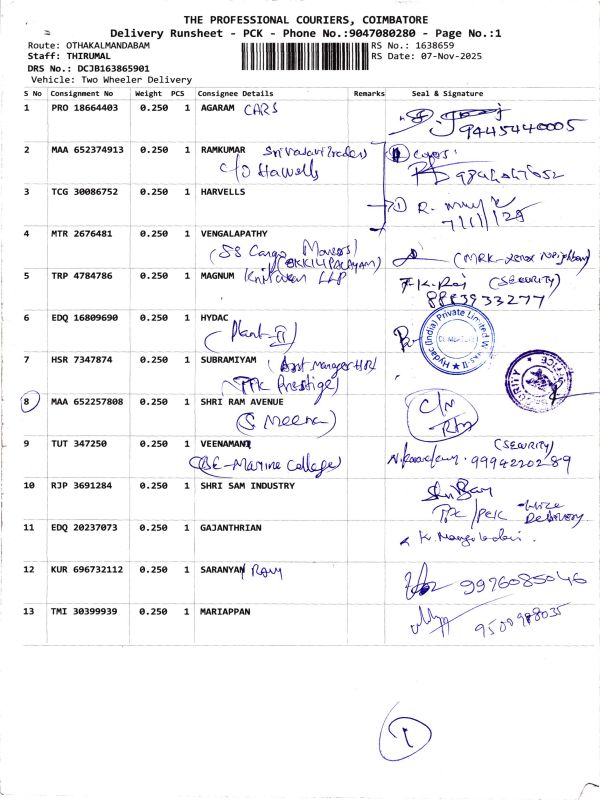 THE PROFESSIONAL COURIERS, COIMBATORE
Delivery Runsheet - PCK - Phone No.:9047080280 - Page No.:1
Route: OTHAKALMANDABAM
RS No.: 1638659
Staff: THIRUMAL
RS Date: 07-Nov-2025
DRS No.: DCJB163865901
Vehicle: Two Wheeler Delivery
S No Consignment No Weight PCS Consignee Details Remarks Seal & Signature
1 PRO 18664403 0.250 1 AGARAM CARS
9445440005
2 MAA 652374913 0.250 1 RAMKUMAR
C/O Hawells
3 TCG 30086752 0.250 1 HARVELLS
① R.
7/11/25
4 MTR 2676481 0.250 1 VENGALAPATHY
(SS Cargo Movers)
(OKKILIPALAYAM)
5 TRP 4784786 0.250 1 MAGNUM Knitwear LLP
(SECURITY)
8883933277
6 EDQ 16809690 0.250 1 HYDAC
(Plant-II)
Hydac (India) Private Limited
7 HSR 7347874 0.250 1 SUBRAMIYAM (Asst Manager HR)
TTK Prestige)
SECURITY OFFICE
8 MAA 652257808 0.250 1 SHRI RAM AVENUE
(S Meena)
C/M
9 TUT 347250 0.250 1 VEENAMANI
Marine College)
(SECURITY)
9994220289
10 RJP 3691284 0.250 1 SHRI SAM INDUSTRY
Delivery
11 EDQ 20237073 0.250 1 GAJANTHRIAN
12 KUR 696732112 0.250 1 SARANYAN
9976085046
13 TMI 30399939 0.250 1 MARIAPPAN
9500988035
①